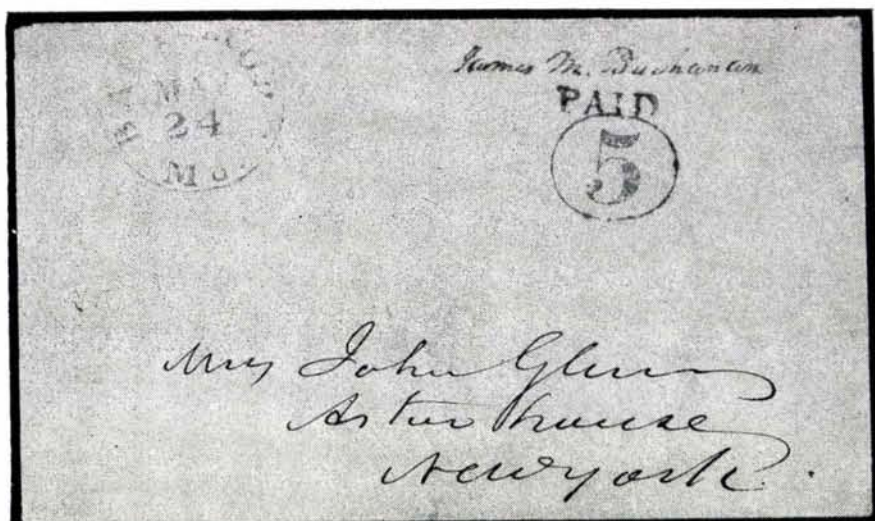 BALTIMORE
MAY
24
Md.
James M. Buchanan
PAID
5
Mrs John Glenn
Astor house
New york.